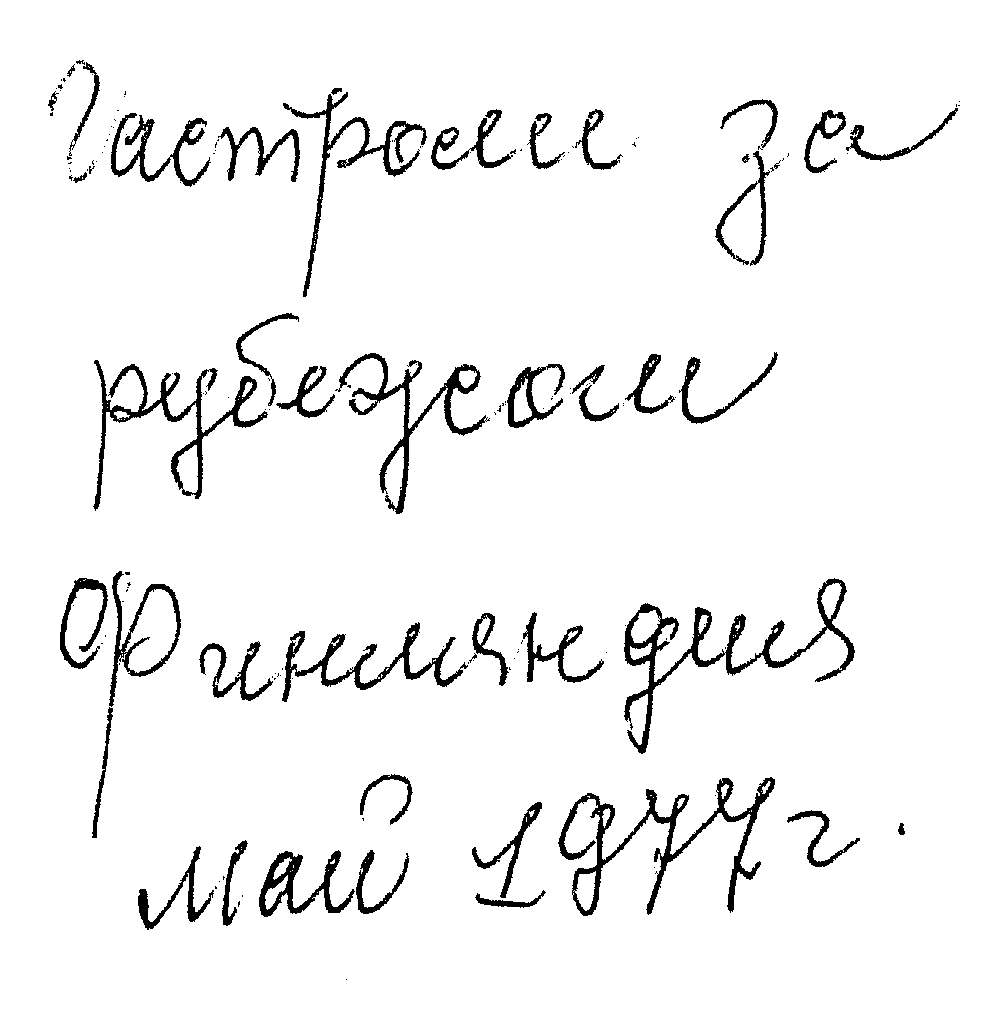 Гастроли за
рубежом
Финляндия
май 1977 г.